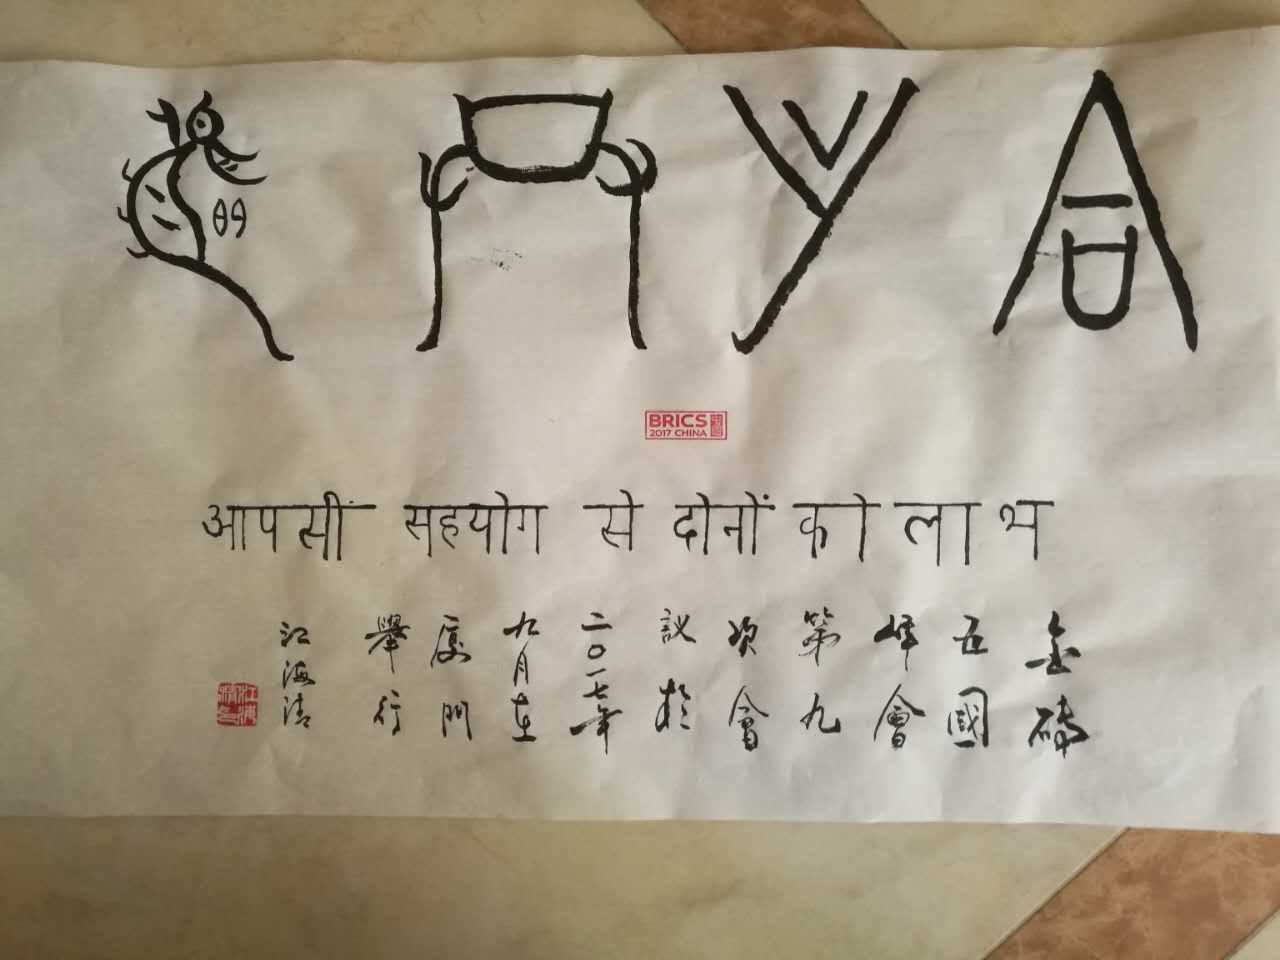 合作共贏
BRICS
2017 CHINA
आपसी सहयोग से दोनों को लाभ
金磚
五國
峰會
第九
次會
議於
二〇一七年
九月在
廈門
舉行
江海清